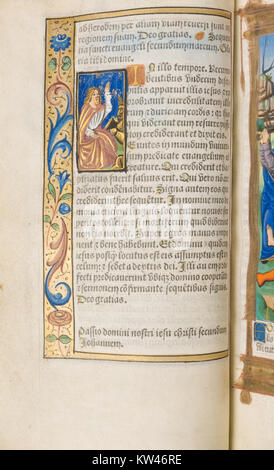 ab herodem per aliam viam reversi sunt in
regionem suam. Deo gratias.
tia sancti euangelii secundum marcum. Glo
ria tibi domine.
In illo tempore. Recum
bentibus undecim disci
pulis apparuit illis iesus et ex
probravit incredulitatem illo
rum et duriciam cordis: quia
crediderunt et dixit eis.
Euntes in mundum univer
sum predicate euangelium o
creature. Qui crediderit et
baptisatus fuerit salvus erit. Qui vero non
crediderit condemnabitur. Signa autem eos qui
crediderint hec sequentur. In nomine meo de
monia eicient linguis loquentur novis ser
pentes tollent: et si mortiferum quid biberint
non eis nocebit. Super egros manus impo
nent et bene habebunt. Et dominus quidem
iesus postquam locutus est eis assumptus est in
celum et sedet a dextris dei. Illi autem profecti
predicaverunt ubique domino cooperante et
sermonem confirmante sequentibus signis.
Deo gratias.
Passio domini nostri iesu christi secundum
Johannem.
alamy
Image ID: KW46RE
www.alamy.com